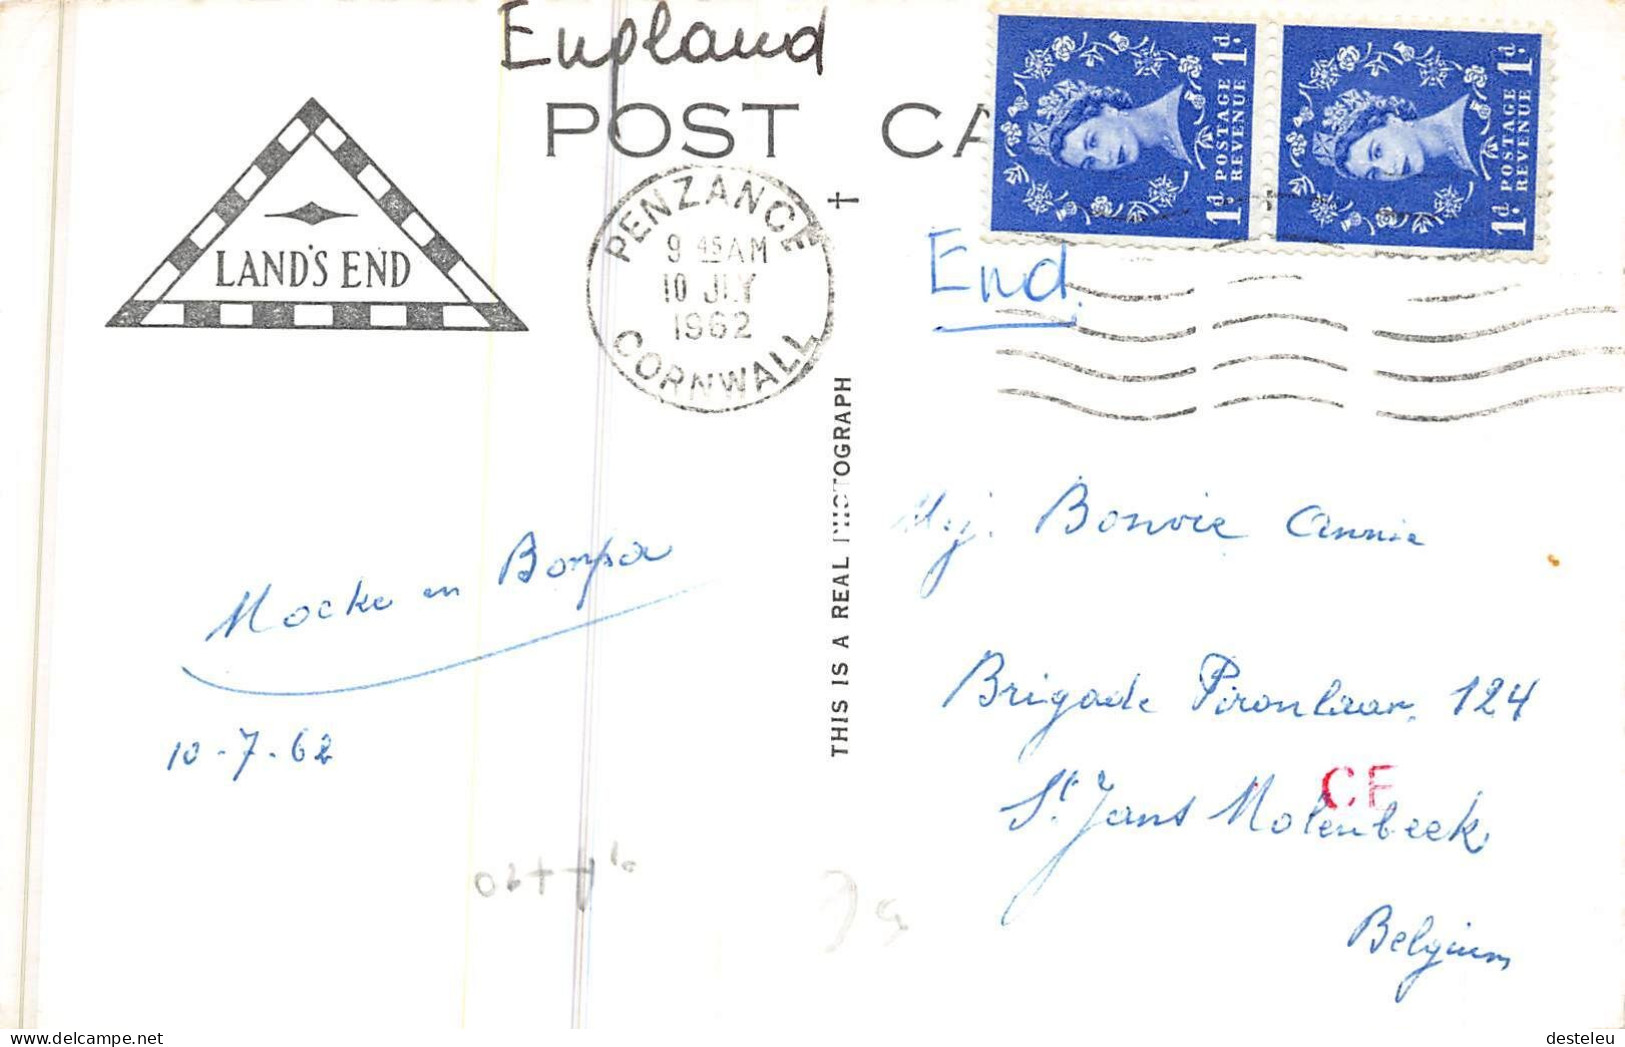 England
POST CA
LAND'S END
PENZANCE
9 45 AM
10 JLY
1962
CORNWALL
1d. POSTAGE REVENUE 1d.
1d. POSTAGE REVENUE 1d.
End
THIS IS A REAL PHOTOGRAPH
Mocke en Bompa
10-7-62
Mej. Bonvie Annie
Brigade Pironlaan. 124
St Jans Molenbeek
CE
Belgium
delcampe.net
desteleu